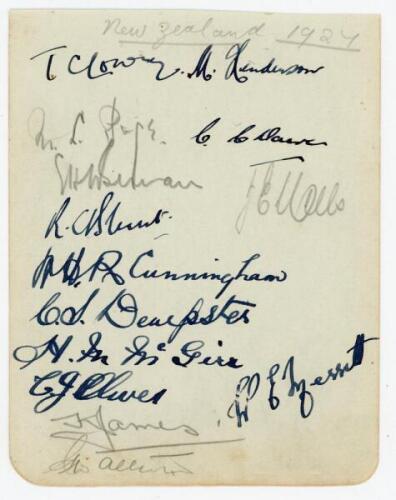 New Zealand 1927
T C Lowry. M. Henderson
M. L. Page. C. C. Dacre
J E Mills
R. C. Blunt.
W. H. R. Cunningham
C. S. Dempster
H. M. McGirr
C. F. Oliver W E Merritt
K James